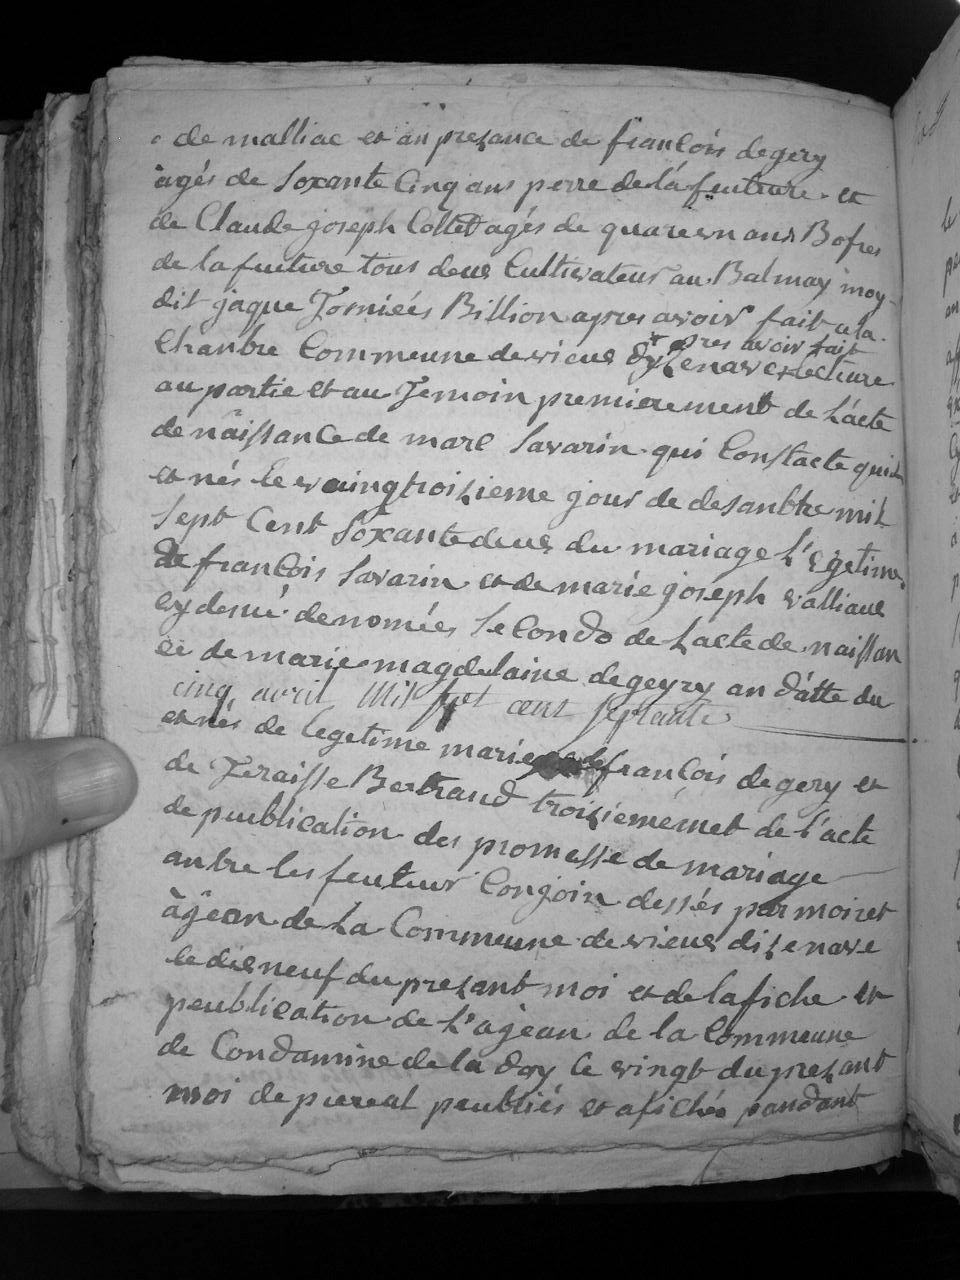 de malliac et an prezance de francois degery
agés de soxante cinq ans perre de la feuture et
de Claude joseph Collet agés de quaren ans Bofres
de la feuture tous deus Cultivateur au Balmay moy
dit jaque Jorniées Billion apres avoir fait a la
Chanbre Commeune de vieus dizenave lecture
apres avoir fait
au partie et au Temoin premierement de lacte
de naissance de marc Savarin qui Constacte quil
et nés le vaingtroizieme jour de desanbre mil
sept Cent soxante deus du mariage l'egetime
de francois Savarin et de marie joseph valliaue
cy desue denomées Secondo de lacte de naissan
ce de marie magdelaine degeyry an datte du
cinq avril mil sept cent septante
et nés de legetime marie francois degery et
de Teraisse Bertrand troiziememet de l'acte
de peublication des promesse de mariage
antre les feuteur Conjoin dessés par moi et
àjean de La Commeune de vieus dizenave
le disneuf du prezant moi et de lafiche et
peublication de l'ajean de la Commeune
de Condamine de la doy le vingt du prezant
moi de pureal peubliés et afichés pandant